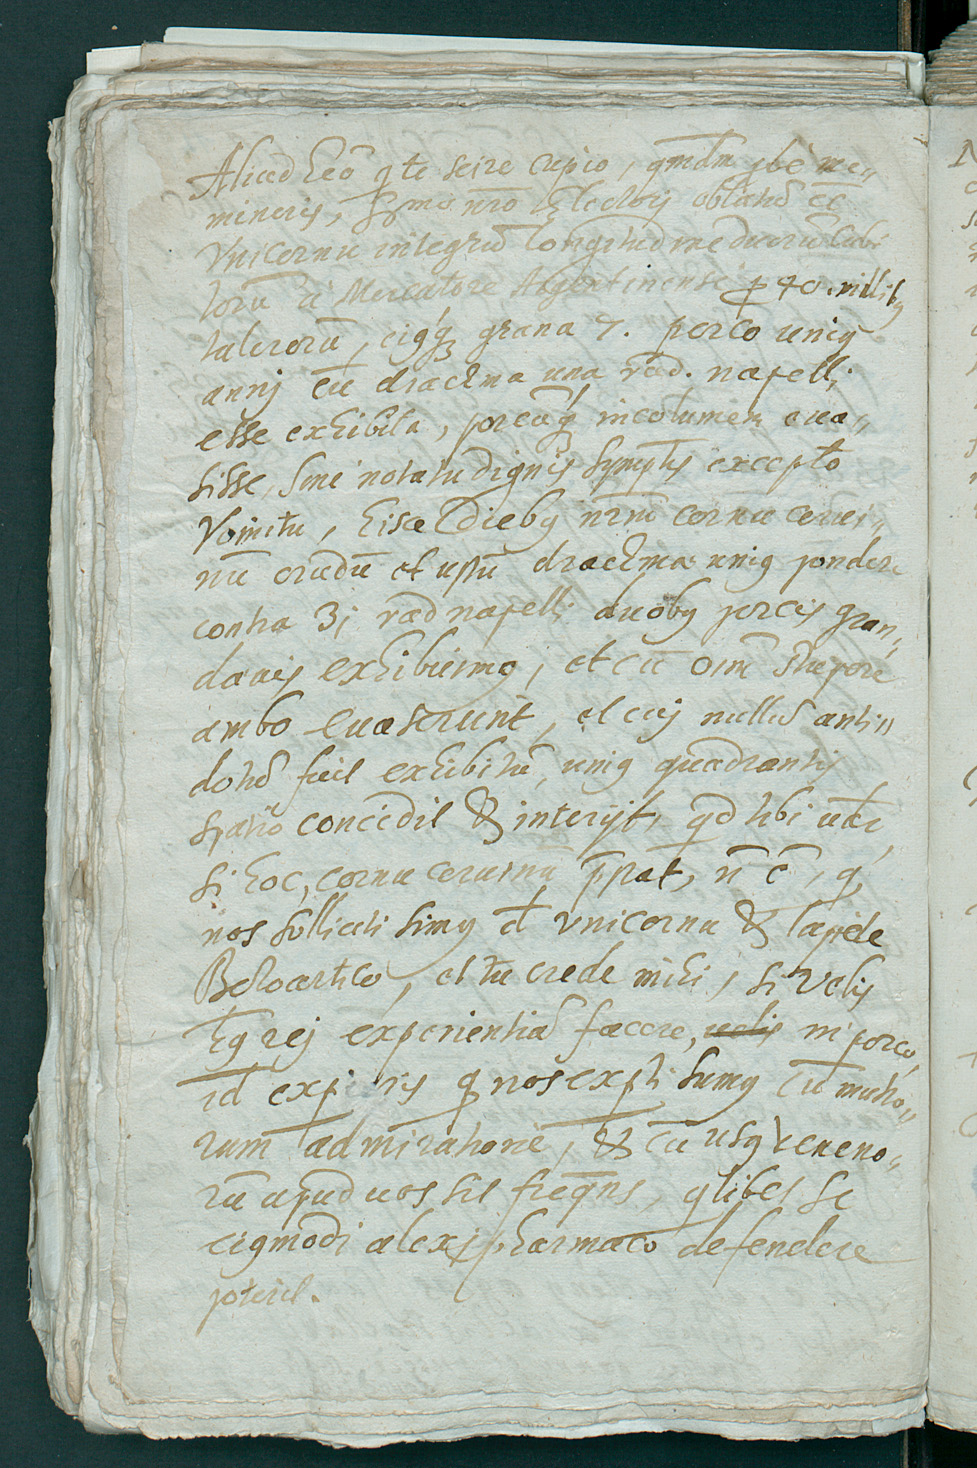 Aliud Eeō q te scire cupio, qmdm
mineris, Ssmo nro Electorj oblatu ēē
Unicornu integru longitud ine duaru Cubi
torū à Mercatore Argentinensi p 40. millib9
talerorū, ei9q; grana 7. porco uni9
annj cū drachma una rad. napellj
esse exhibita, porcūq; incolumem eua„
sisse, sine notatu dignis symptis excepto
Vomitu, hisce dieb9 nrm cornu cerui„
nū crudū et ustū drachmæ uni9 pondere
contra ʒj rad napellj duob9 porcis gran„
dæuis exhibuimo, et cū oīm stupore
ambo euaserunt, et cuj nullu anti„
dotu fuit exhibitū, uni9 quadrantis
spatio concidit & interijt, qd tibi
si hoc, cornu ceruinū pstat, n ē, q
nos solliciti sim9 d Unicornu & lapide
Bezoartico, et tu crede mihi, si Velis
rej experientiā facere, uelis in porco,
id expieris q nos expti sum9 cū multo„
rum admiratione, & cū us9 Veneno„
rū apud uos sit freqns, qlibet se
ei9modi alexipharmaco defendere
poterit.